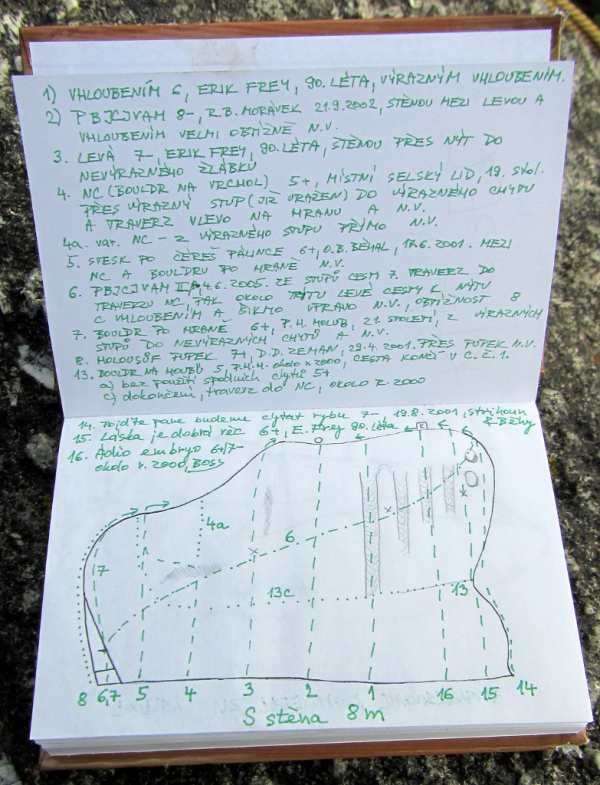 1) VHLOUBENÍM 6, ERIK FREY, 90. LÉTA, VÝRAZNÝM VHLOUBENÍM.
2) PBJCJVAM 8-, R.B. MORÁVEK 21.9.2002, STĚNOU MEZI LEVOU A
VHLOUBENÍM VELMI OBTÍŽNĚ N.V.
3. LEVÁ 7-, ERIK FREY, 90. LÉTA, STĚNOU PŘES NÝT DO
NEVÝRAZNÉHO ŽLÁBKU
4. NC (BOULDR NA VRCHOL) 5+, MÍSTNÍ SELSKÝ LID, 19. STOL.
PŘES VÝRAZNÝ STUP (JIŽ URAŽEN) DO VÝRAZNÉHO CHYTU
A TRAVERZ VLEVO NA HRANU A N.V.
4a. var. NC - Z VÝRAZNÉHO STUPU PŘÍMO N.V.
5. SVESK PO ČEŘES PÁLINCE 6+, O.B. BĚHAL, 17.6.2001. MEZI
NC A BOULDRU PO HRANĚ N.V.
6. PBJCJVAM II, 4.6.2005. ZE STUPŮ CESTY 7. TRAVERZ DO
TRAVERZU NC, PAK OKOLO NÝTU LEVÉ CESTY K NÝTU
C VHLOUBENÍM A ŠIKMO VPRAVO N.V., OBTÍŽNOST 8
7. BOULDR PO HRANĚ 6+, P.H. HOLUB, 21. STOLETÍ, Z VÝRAZNÝCH
STUPŮ DO NEVÝRAZNÝCH CHYTŮ A N.V.
8. HOLOUSŮF PUPEK 7+, D.D. ZEMAN, 29.4.2001. PŘES PUPEK N.V.
13. BOULDR NA HOUBĚ 5, P.H.H. okolo r. 2000, CESTA KONČÍ V C. Č. 1.
a) bez použití spodních chytů 5+
c) dokončení, traverz do NC, OKOLO R. 2000
14. Pojďte pane budeme chytat rybu 7-, 19.8.2001, strýhoun
& Běhy
15. Láska je dobrá věc 6+, E. Frey 90. léta
16. Adio embryo 6+/7-
okolo r. 2000, BOSS
4a
7
6
13c
13
8 6,7 5 4 3 2 1 16 15 14
S stěna 8 m